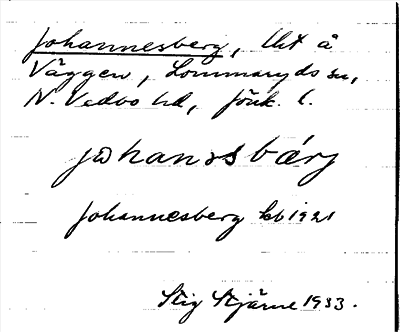 Johannesberg, lht å
Väggen, Lommaryds sn,
N. Vedbo hd, Jönk. l.
johanəsbárj
Johannesberg kb 1921
Stig Stjärne 1933.